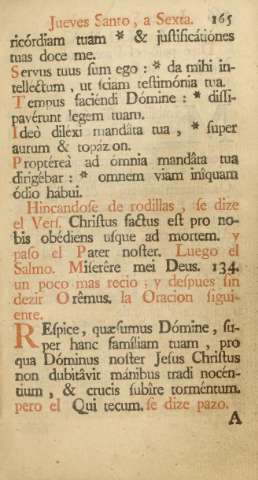 Jueves Santo, a Sexta. 165
ricórdiam tuam * & justificátiones
tuas doce me.
Servus tuus sum ego : * da mihi in-
telléctum , ut sciam testimónia tua.
Tempus faciéndi Dómine : * dissi-
pavérunt legem tuam.
Ideò diléxi mandáta tua , * super
aurum & topáz on.
Proptéreà ad ómnia mandáta tua
dirigébar : * omnem viam iníquam
ódio hábui.
Hincandose de rodillas , se dize
el Vers. Christus factus est pro no-
bis obédiens usque ad mortem. y
paso el Pater noster. Luego el
Salmo. Miserére mei Deus. 134.
un poco mas recio ; y despues sin
dezir Orêmus. la Oracion sigui-
ente.
REspice, quæsumus Dómine, su-
per hanc famíliam tuam , pro
qua Dóminus noster Jesus Christus
non dubitâvit mánibus tradi nocén-
tium , & crucis subîre torméntum.
pero el Qui tecum. se dize pazo.
A